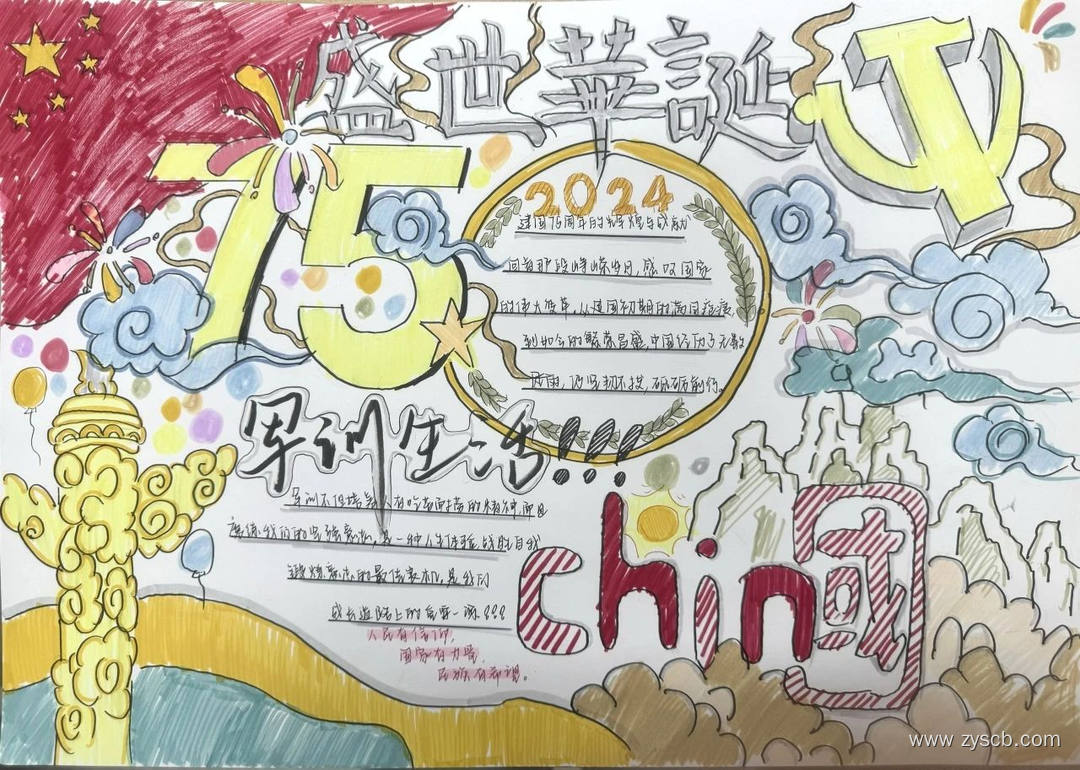 盛世華誕
75
2024
建国75周年的辉煌与成就
回首那段峥嵘岁月,感叹国家
的伟大变革,从建国初期的满目疮痍,
到如今的繁荣昌盛,中国经历了无数
风雨,仍坚韧不拔,砥砺前行。
军训生活!!!
军训不但培养人有吃苦耐劳的精神,而且
磨练我们的坚强意志,是一种人生体验,战胜自我
锻炼意志的最佳良机,是我们
成长道路上的重要一课!!!
人民有信仰,
国家有力量,
民族有希望。
chin國
www.zyscb.com